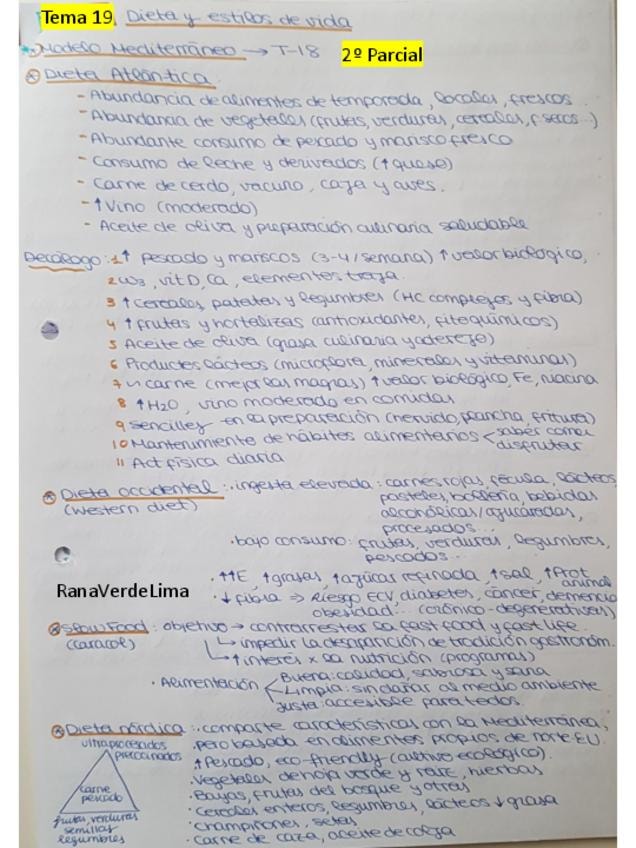 Tema 19. Dieta y estilos de vida
Modelo Mediterráneo → T-18 2º Parcial
Dieta Atlántica
- Abundancia de alimentos de temporada, locales, frescos
- Abundancia de vegetales (frutas, verduras, cereales, f secos...)
- Abundante consumo de pescado y marisco fresco
- Consumo de leche y derivados (↑ queso)
- Carne de cerdo, vacuno, caza y aves.
- ↑ Vino (moderado)
- Aceite de oliva y preparación culinaria saludable
Decálogo: 1 ↑ Pescado y mariscos (3-4/semana) ↑ valor biológico,
2 ω3, vit D, Ca, elementos traza.
3 ↑ Cereales, patatas y legumbres (HC complejos y fibra)
4 ↑ frutas y hortalizas (antioxidantes, fitoquímicos)
5 Aceite de oliva (grasa culinaria y aderezo)
6 Productos lácteos (microflora, minerales y vitaminas)
7 ~ carne (mejor las magras) ↑ valor biológico, Fe, niacina
8 ↑ H2O, vino moderado en comidas
9 Sencillez en la preparación (hervido, plancha, fritura)
10 Mantenimiento de hábitos alimentarios < saber comer
disfrutar
11 Act física diaria
Dieta occidental: · ingesta elevada: carnes rojas, fécula, lácteos
(western diet) pasteles, bollería, bebidas
alcohólicas/azucaradas,
procesados...
· bajo consumo: frutas, verduras, legumbres,
pescados...
· ↑↑E, ↑grasas, ↑azúcar refinada, ↑sal, ↑Prot animal
RanaVerdeLima
· ↓ fibra ⇒ Riesgo ECV, diabetes, cáncer, demencia
obesidad... (crónico-degenerativas)
Slow Food: objetivo → contrarrestar la fast food y fast life.
(caracol) ↳ impedir la desaparición de tradición gastronóm.
↳ ↑ interés x la nutrición (programas)
· Alimentación < Buena: calidad, sabrosa y sana
Limpia: sin dañar al medio ambiente
Justa: accesible para todos.
Dieta nórdica: · comparte características con la Mediterránea,
ultraprocesados · pero basada en alimentos propios de norte EU.
precocinados · ↑ Pescado, eco-friendly (cultivo ecológico).
· Vegetales de hoja verde y raíz, hierbas
carne · Bayas, frutas del bosque y otros
pescado · Cereales enteros, legumbres, lácteos ↓ grasa
frutas, verduras · Champiñones, setas
semillas · Carne de caza, aceite de colza
legumbres